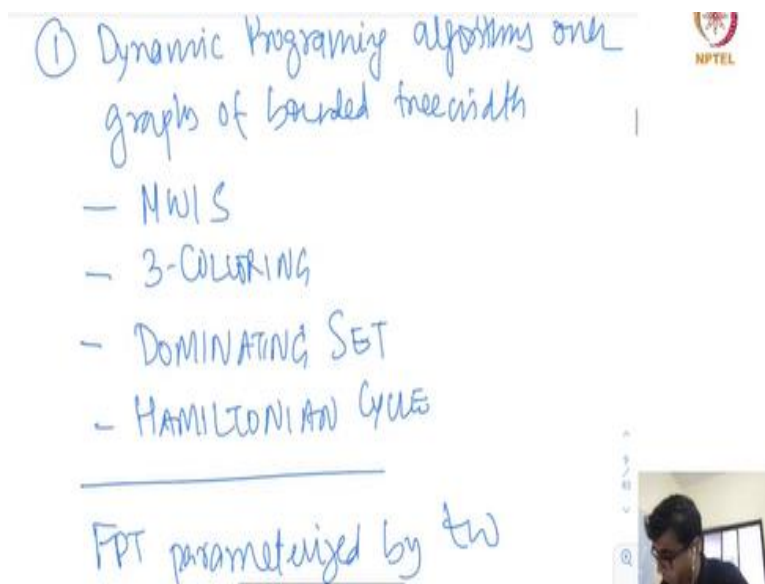 ① Dynamic Programing algorithms over
graphs of bounded treewidth
- MWIS
- 3-COLORING
- DOMINATING SET
- HAMILTONIAN CYCLE
FPT parameterized by tw
NPTEL